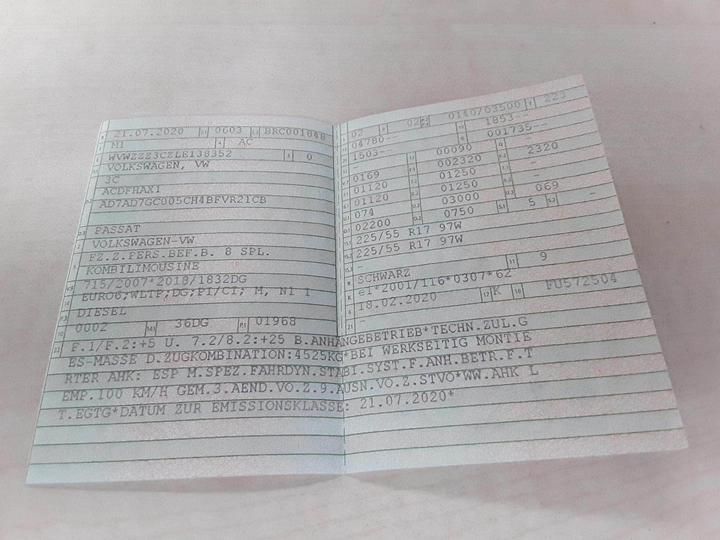 21.07.2020 0603 BRC001848
M1 AC
WVWZZZ3CZLE138352 0
VOLKSWAGEN, VW
3C
ACDFHAX1
AD7AD7GC005CH4BFVR21CB
PASSAT
VOLKSWAGEN-VW
FZ.Z.PERS.BEF.B. 8 SPL.
KOMBILIMOUSINE
715/2007*2018/1832DG
EURO6;WLTP;DG;PI/CI; M, N1 I
DIESEL
0002 36DG 01968
02 02 0140/03500 223
04780-- 1853--
1503-- 001735--
00090
0169 002320 2320
01120 01250 -
01120 01250 -
074 03000 069
02200 0750 5 -
225/55 R17 97W
225/55 R17 97W
-
SCHWARZ 9
e1*2001/116*0307*62
18.02.2020 K FU572504
F.1/F.2:+5 U. 7.2/8.2:+25 B.ANHÄNGEBETRIEB*TECHN.ZUL.G
ES-MASSE D.ZUGKOMBINATION:4525KG*BEI WERKSEITIG MONTIE
RTER AHK: ESP M.SPEZ.FAHRDYN.STABI.SYST.F.ANH.BETR.F.T
EMP.100 KM/H GEM.3.AEND.VO.Z.9.AUSN.VO.Z.STVO*WW.AHK L
T.EGTG*DATUM ZUR EMISSIONSKLASSE: 21.07.2020*